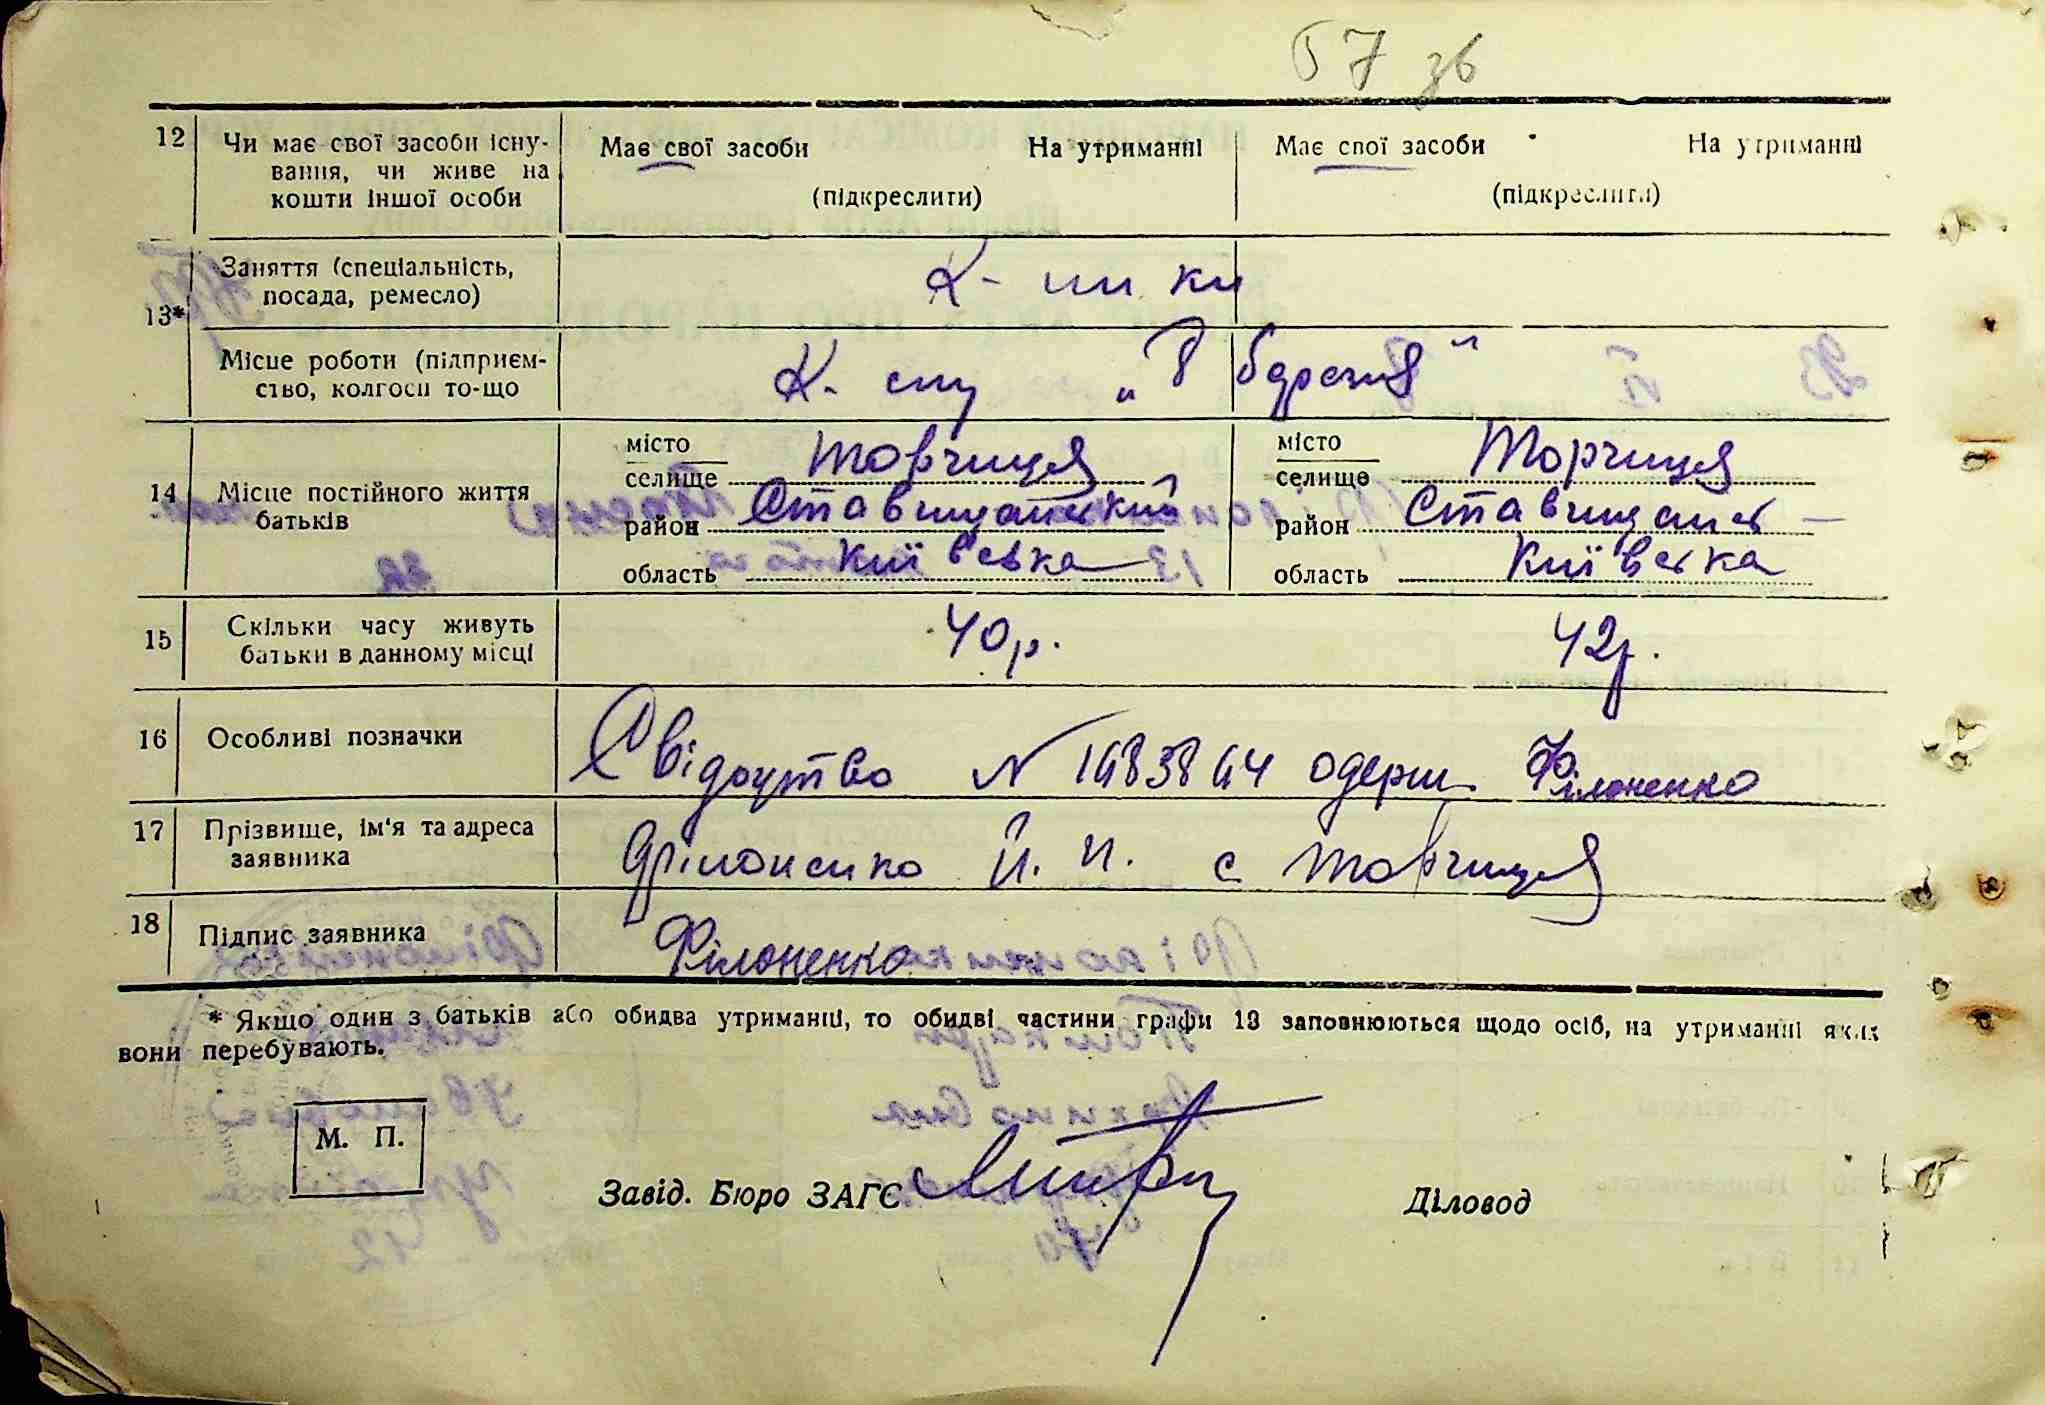 57 зв
12 Чи має свої засоби існу- Має свої засоби На утриманні Має свої засоби На утриманні
вання, чи живе на
кошти іншої особи (підкреслити) (підкреслити)
Заняття (спеціальність, К-ники
посада, ремесло)
13*
Місце роботи (підприєм- К-спу „8 березня"
ство, колгосп то-що
місто Торчиця місто Торчиця
селище селище
14 Місце постійного життя
батьків район Ставищанський район Ставищанськ-
область Київська область Київська
15 Скільки часу живуть 40 р. 42 р.
батьки в данному місці
16 Особливі позначки Свідоцтво N одерж. Філоненко
17 Прізвище, ім'я та адреса Філоненко Й. П. с Торчиця
заявника
18 Підпис заявника Філоненко
* Якщо один з батьків або обидва утриманці, то обидві частини графи 13 заповнюються щодо осіб, на утриманні яких
вони перебувають.
М. П.
Завід. Бюро ЗАГС Діловод